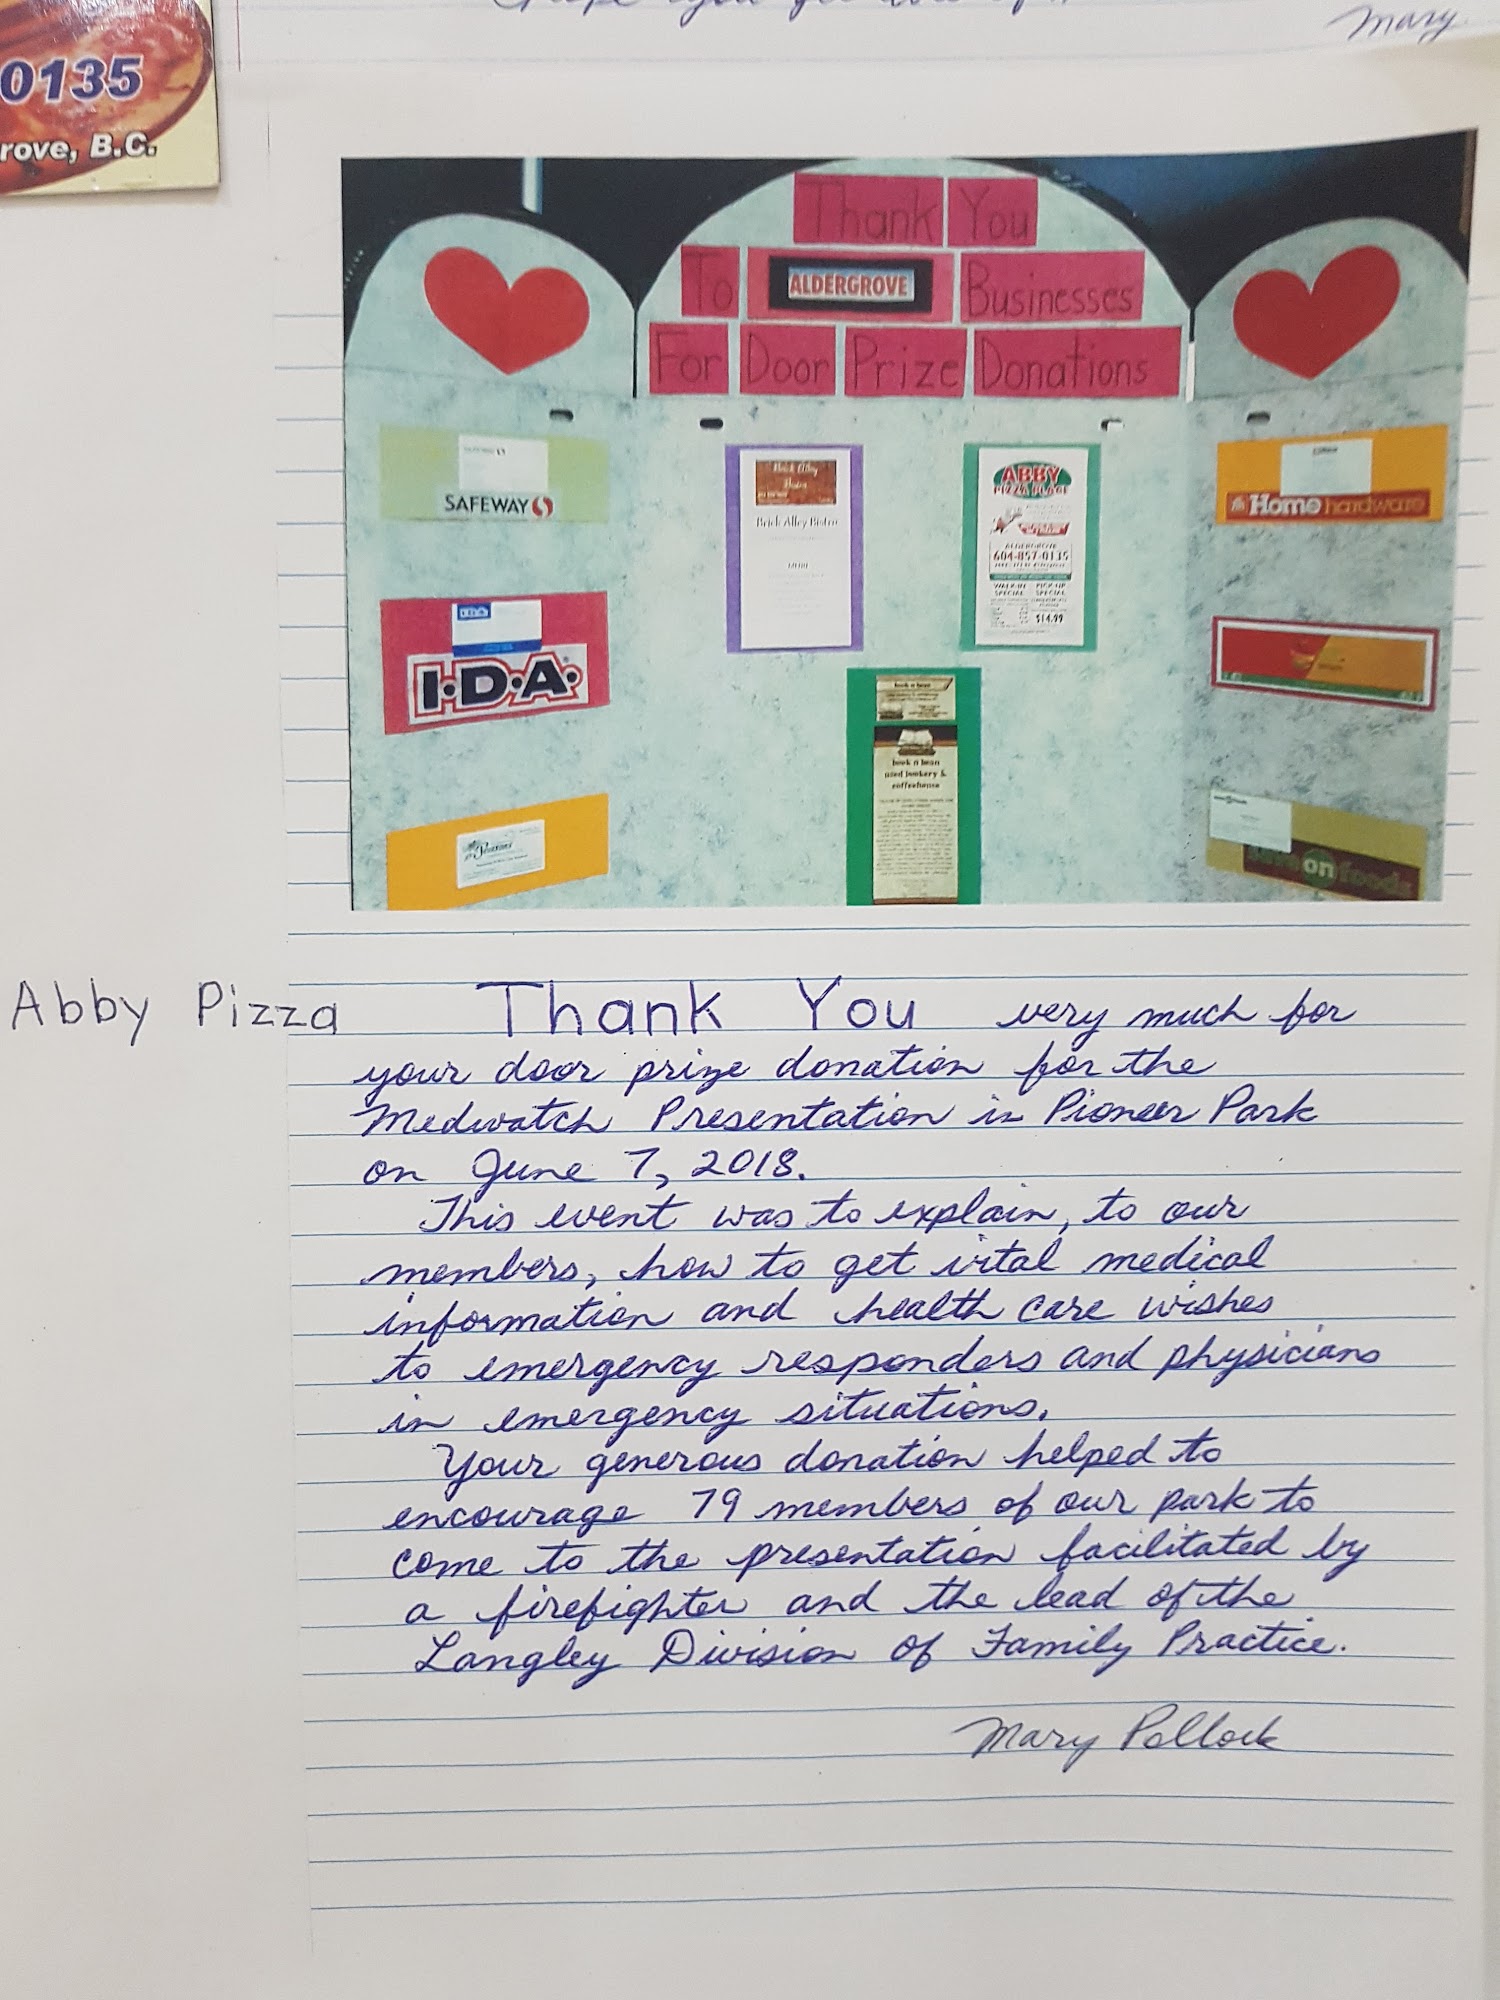 Mary
0135
rove, B.C.
Thank You
To ALDERGROVE Businesses
For Door Prize Donations
SAFEWAY
Home hardware
Brick Alley Bistro
MENU
ABBY
PIZZA PLACE
ALDERGROVE
604-857-0135
WALK-IN SPECIAL
PICK-UP SPECIAL
$14.99
I.D.A.
I.D.A.
book n bean
book n bean
used bookery &
coffeehouse
on foods
Abby Pizza Thank You very much for
your door prize donation for the
Medwatch Presentation in Pioneer Park
on June 7, 2018.
This event was to explain, to our
members, how to get vital medical
information and health care wishes
to emergency responders and physicians
in emergency situations.
Your generous donation helped to
encourage 79 members of our park to
come to the presentation facilitated by
a firefighter and the lead of the
Langley Division of Family Practice.
Mary Pollock